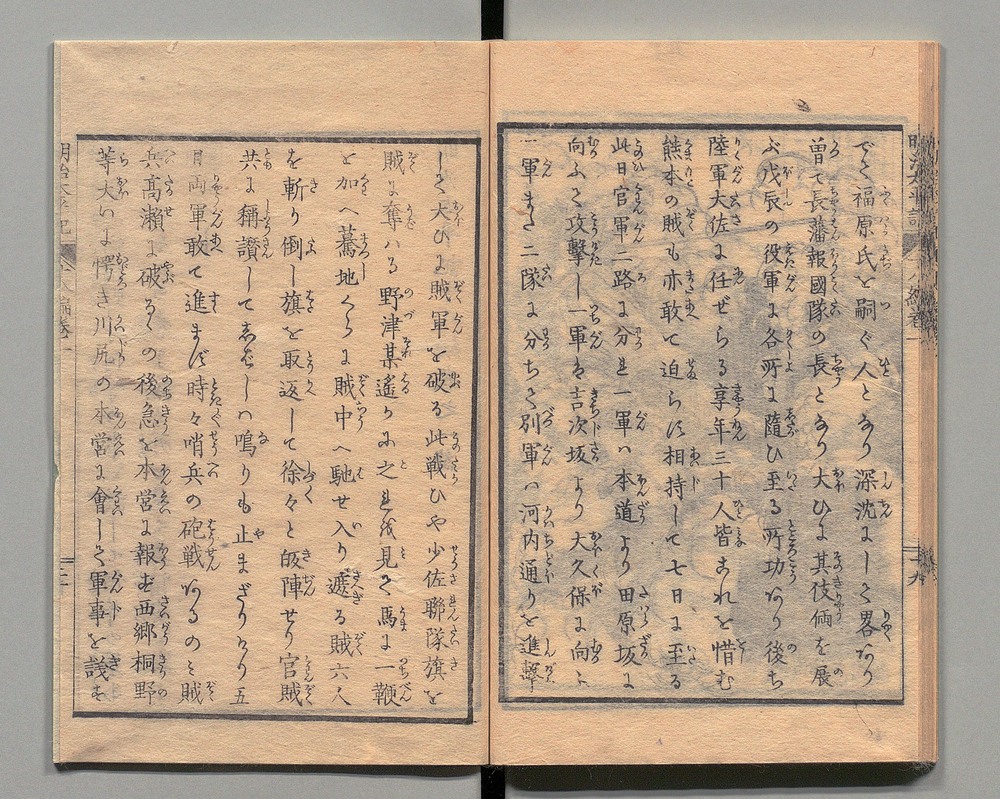 でく福原氏を嗣ぐ人となり深沈にして畧あり
曽て長藩報國隊の長となり大ひに其伎倆を展
ぶ戊辰の役軍に各所に隨ひ至る所功あり後ち
陸軍大佐に任ぜらる享年三十人皆これを惜む
熊本の賊も亦敢て迫らず相持して七日に至る
此日官軍二路に分れ一軍ハ本道より田原坂に
向ふて攻撃し一軍は吉次坂より大久保に向ふ
一軍また二隊に分ちて別軍ハ河内通りを進撃
して大ひに賊軍を破る此戦ひや少佐聯隊旗を
賊に奪ハる野津某遙かに之れを見て馬に一鞭
を加へ驀地くらに賊中へ馳せ入り遮る賊六人
を斬り倒し旗を取返して徐々と皈陣せり官賊
共に稱讃して しバしハ鳴りも止まざりけり五
日両軍敢て進まず時々哨兵の砲戦あるのミ賊
兵髙瀬に破るゝの後急を本営に報ず西郷桐野
等大いに愕き川尻の本営に會して軍事を議す
明治太平記
八編巻一